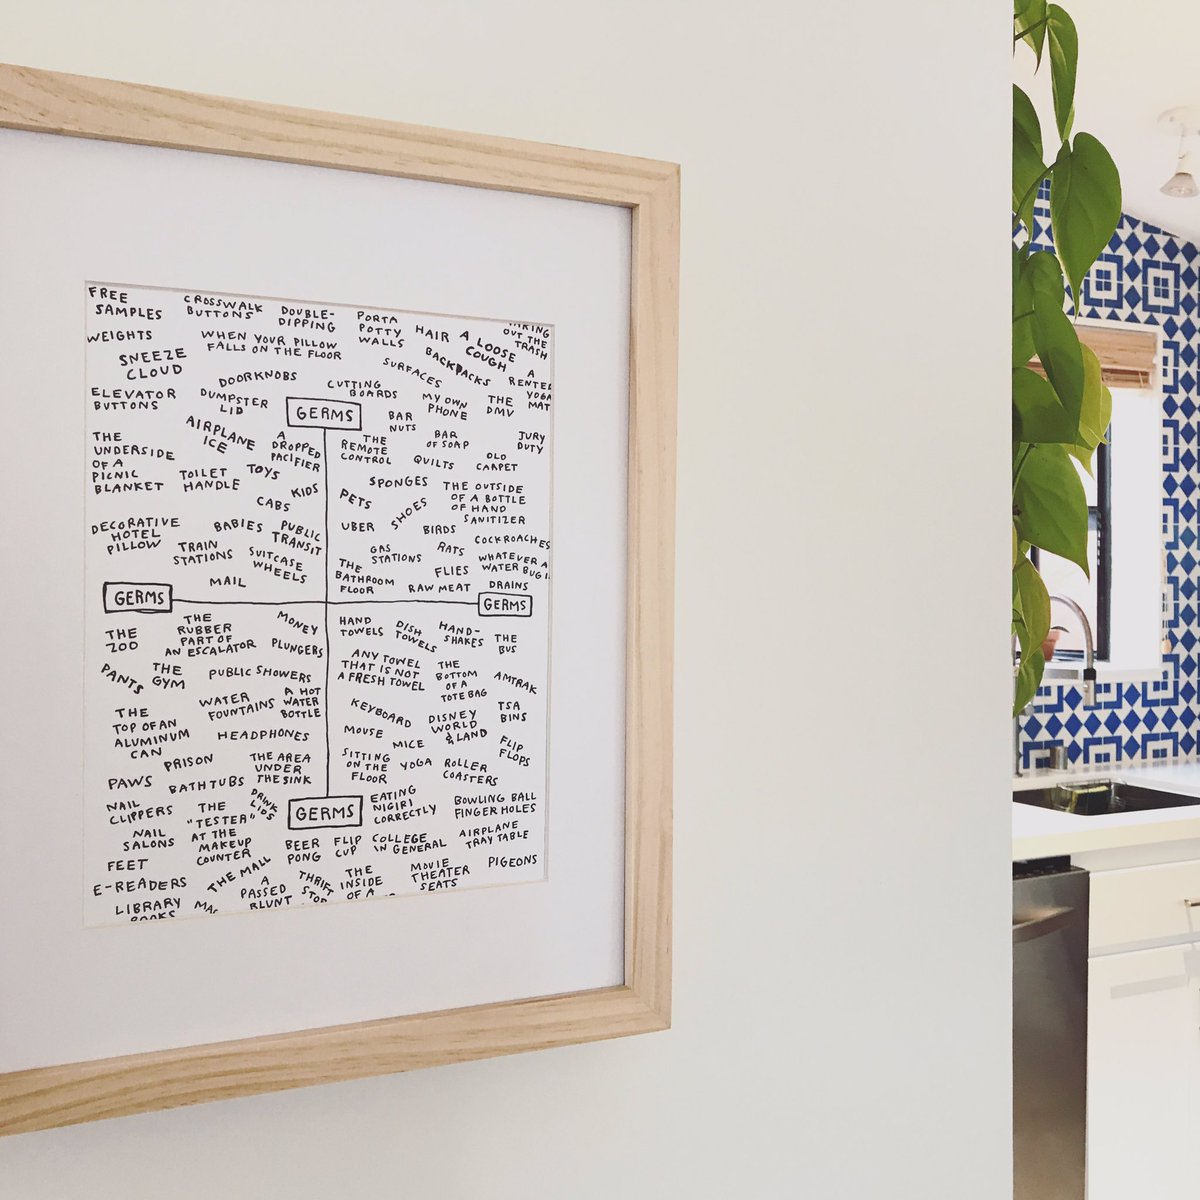 FREE
SAMPLES
CROSSWALK
BUTTONS
DOUBLE-
DIPPING
PORTA
POTTY
WALLS
HAIR
A LOOSE
COUGH
OUT THE
TRASH
WEIGHTS
WHEN YOUR PILLOW
FALLS ON THE FLOOR
SNEEZE
CLOUD
SURFACES
BACKPACKS
A
RENTED
YOGA
MAT
DOORKNOBS
CUTTING
BOARDS
MY OWN
PHONE
THE
DMV
ELEVATOR
BUTTONS
DUMPSTER
LID
GERMS
BAR
NUTS
BAR
OF SOAP
JURY
DUTY
THE
UNDERSIDE
OF A
PICNIC
BLANKET
AIRPLANE
ICE
A
DROPPED
PACIFIER
THE
REMOTE
CONTROL
QUILTS
OLD
CARPET
TOILET
HANDLE
TOYS
KIDS
CABS
SPONGES
PETS
SHOES
THE OUTSIDE
OF A BOTTLE
OF HAND
SANITIZER
DECORATIVE
HOTEL
PILLOW
BABIES
PUBLIC
TRANSIT
UBER
BIRDS
COCKROACHES
TRAIN
STATIONS
SUITCASE
WHEELS
GAS
STATIONS
RATS
WHATEVER A
WATER BUG I
MAIL
THE
BATHROOM
FLOOR
FLIES
RAW MEAT
DRAINS
GERMS
GERMS
THE
ZOO
THE
RUBBER
PART OF
AN ESCALATOR
MONEY
PLUNGERS
HAND
TOWELS
DISH
TOWELS
HAND-
SHAKES
THE
BUS
PANTS
THE
GYM
PUBLIC SHOWERS
ANY TOWEL
THAT IS NOT
A FRESH TOWEL
THE
BOTTOM
OF A
TOTE BAG
AMTRAK
THE
TOP OF AN
ALUMINUM
CAN
WATER
FOUNTAINS
A HOT
WATER
BOTTLE
KEYBOARD
DISNEY
WORLD
& LAND
TSA
BINS
HEADPHONES
MOUSE
MICE
FLIP
FLOPS
PRISON
THE AREA
UNDER
THE SINK
SITTING
ON THE
FLOOR
YOGA
ROLLER
COASTERS
PAWS
BATHTUBS
NAIL
CLIPPERS
THE
"TESTER"
AT THE
MAKEUP
COUNTER
DRINK
LIDS
GERMS
EATING
NIGIRI
CORRECTLY
BOWLING BALL
FINGER HOLES
NAIL
SALONS
BEER
PONG
FLIP
CUP
COLLEGE
IN GENERAL
AIRPLANE
TRAY TABLE
FEET
THE MALL
MOVIE
THEATER
SEATS
PIGEONS
E-READERS
A
PASSED
BLUNT
THRIFT
THE
INSIDE
OF A
LIBRARY
BOOKS